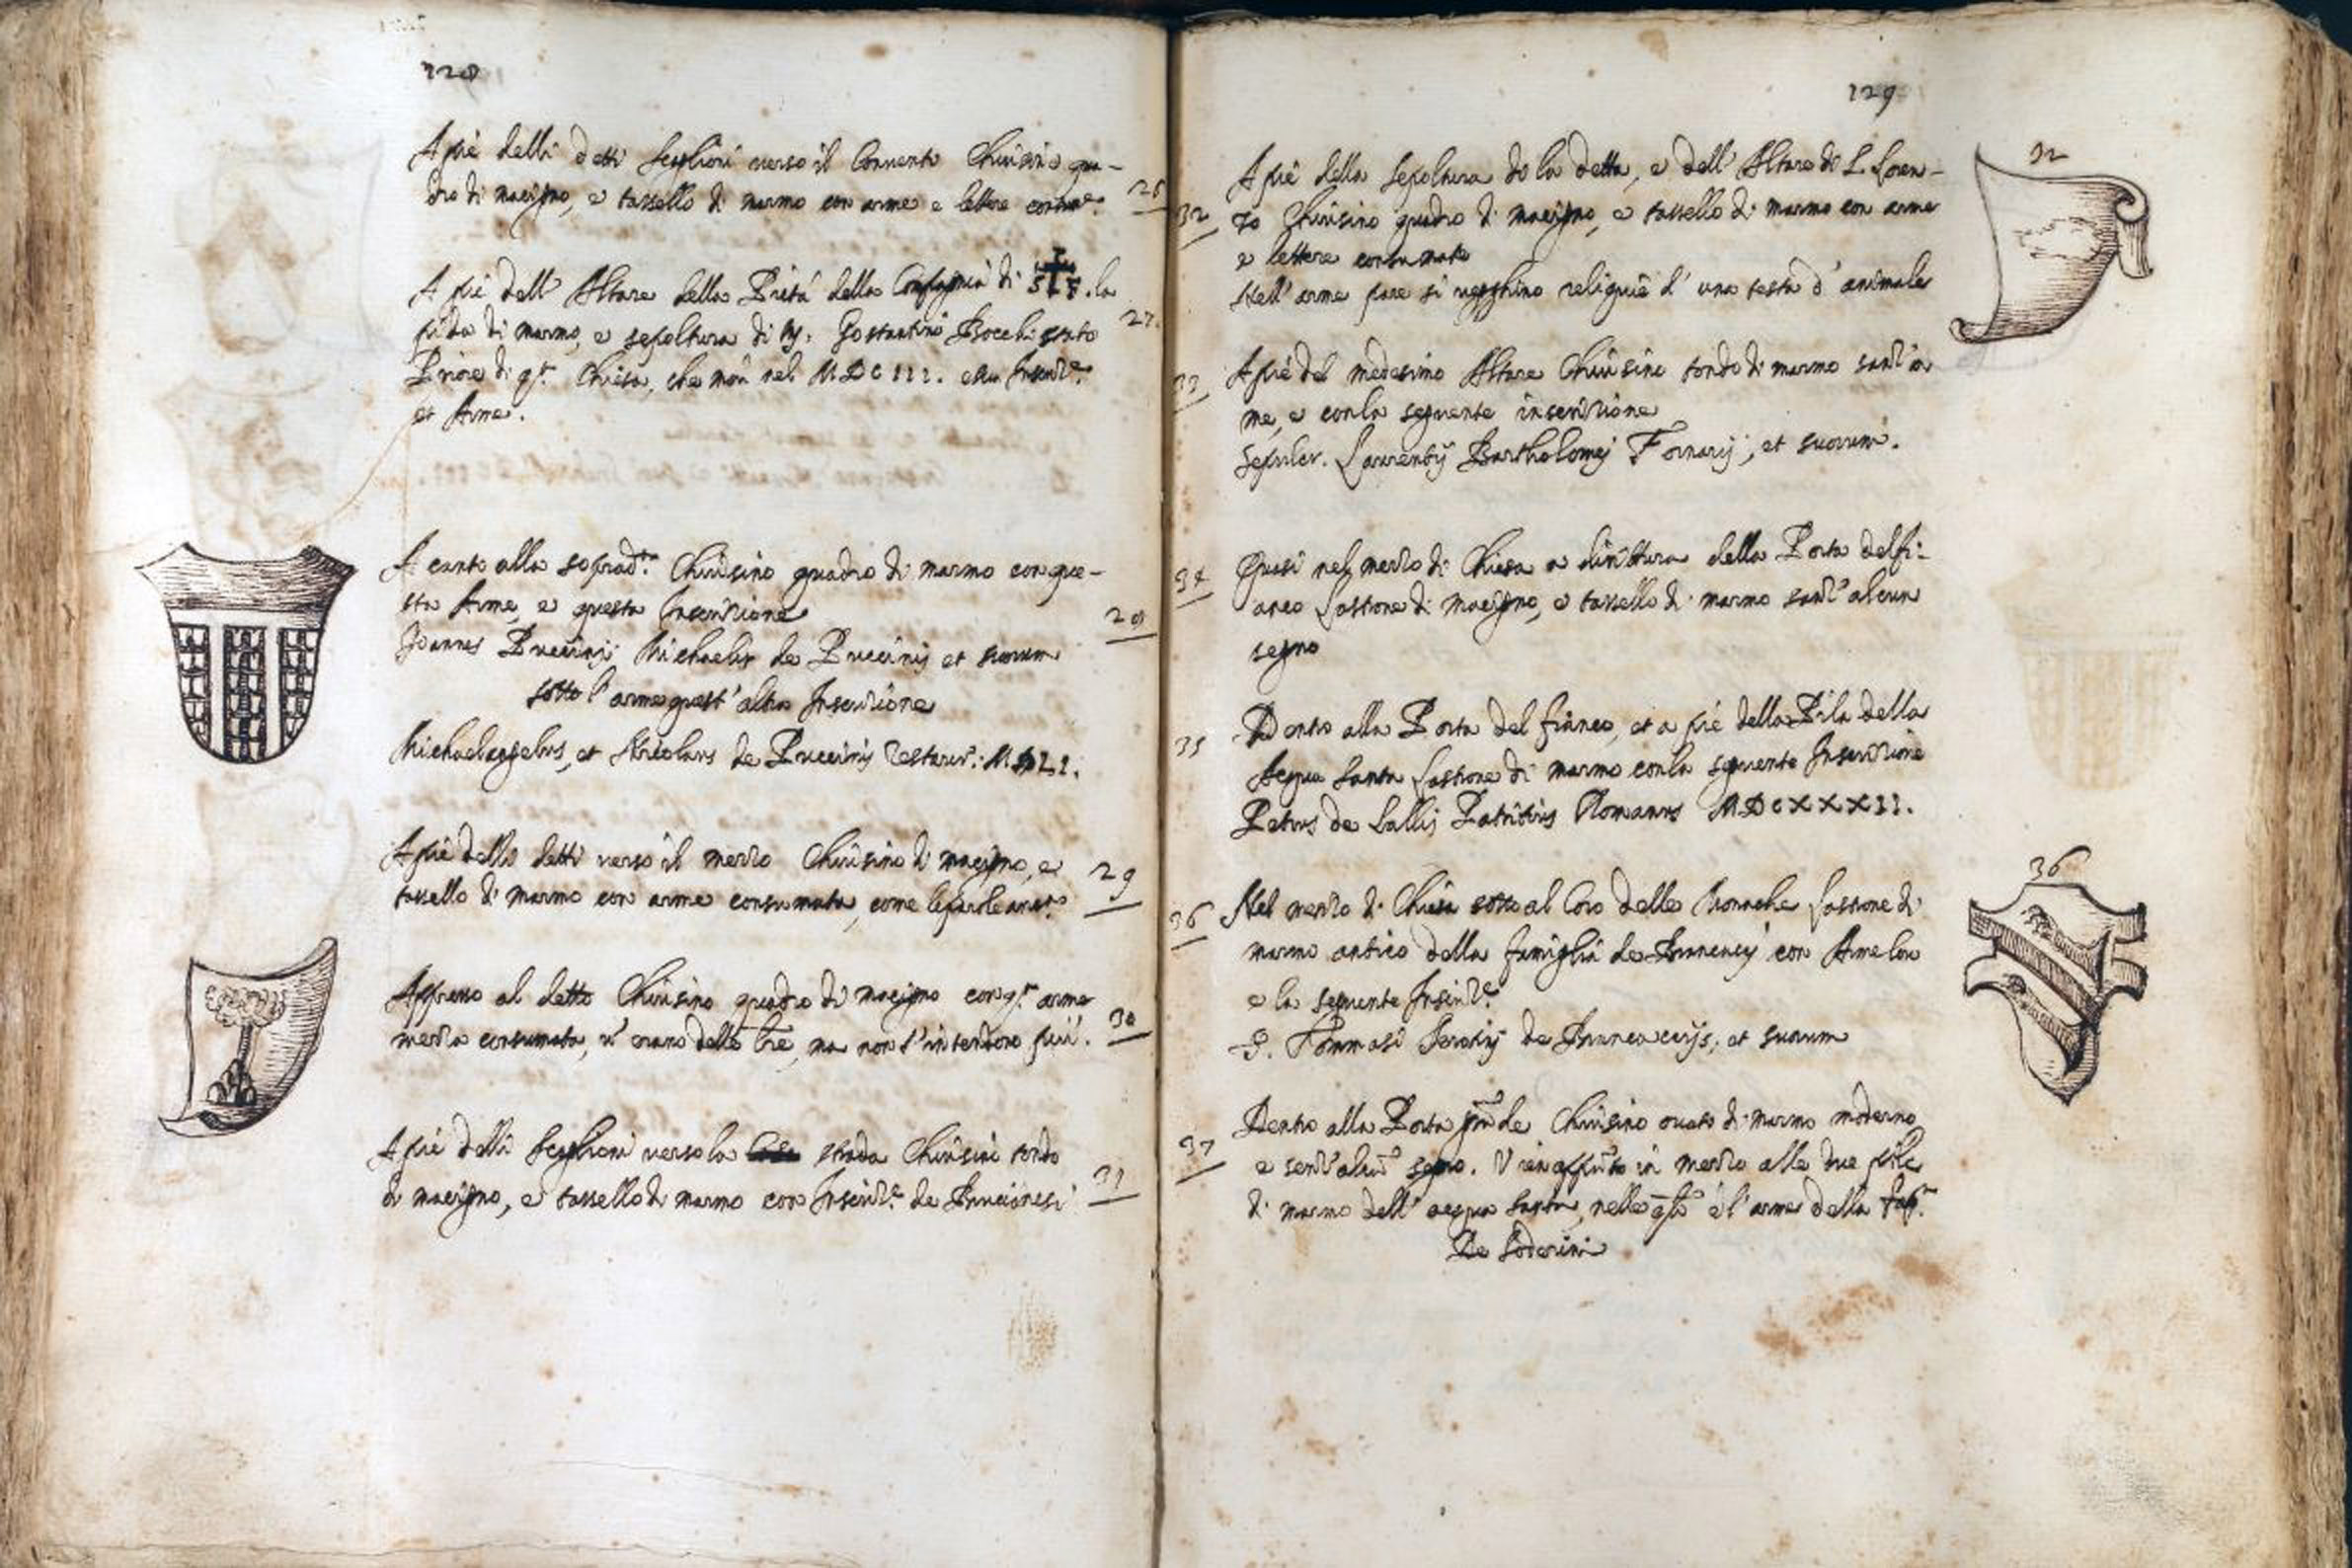 128
A piè delli detti scaglioni verso il Convento Chiusino qua-
dro di macigno, e tassello di marmo con arme e lettere consumᵉ.
26
A piè dell' Altare della Pietà della Compagnia di S. la
pida di marmo, e sepoltura di Gostantino Bocchi stato
27.
Priore di qᵗᵃ Chiesa, che morì nel MDCIII. con Inscrizᵉ
et Arme.
A canto alla sopradᵗᵃ Chiusino quadro di marmo con que-
sta Arme, e questa Inscrizione
28
Joannes Puccinij Michaelis de Puccinis et suorum
sotto l'arme quest'altra Inscrizione
Michaelangelus, et Nicolaus de Puccinis restaurᵗ: MDLI.
A piè delli detti verso il mezzo Chiusino di macigno, e
29
tassello di marmo con arme consumata, come le parole ancᵒ
Appresso al detto Chiusino quadro di macigno con qᵗᵃ arme
30
mezza consumata, v' erano delle lre, ma non s'intendono più.
A piè delli Scaglioni verso la strada Chiusini tondo
31
di macigno, e tassello di marmo con Inscrizᵉ de Brucianesi
129
32
A piè della sepoltura do la detta, e dell' Altare di S. Loren-
32
zo Chiusino quadro di macigno, e tassello di marmo con arme
e lettere consumate
Nell' arme pare si vegghino reliquie d' una testa d' animale
33
A piè del medesimo Altare Chiusino tondo di marmo senz' ar
me, e con la seguente inscrizione
Sepulcr. Laurentij Bartholomej Fornarij, et suorum.
34
Quasi nel mezzo di Chiesa a dirittura della Porta del fi-
anco lastrone di macigno, e tassello di marmo senz' alcun
segno
35
Dentro alla Porta del fianco, et a piè della Pila della
Acqua Santa lastrone di marmo con la seguente Inscrizione
Petrus de Gallis Patritius Romanus MDCXXXII.
36
36
Nel mezzo di Chiesa sotto al Coro delle Monache lastrone di
marmo antico della famiglia de Brunacci con Arme loro
e la seguente Inscrizᵉ
S. Tommasi de Brunacciis, et suorum
37
Dentro alla Porta grande Chiusino ovato di marmo moderno
e senz' alcun segno. Vien appunto in mezzo alle due pile
di marmo dell' acqua santa, nelle qli è l'arme della fam.
De Soderini